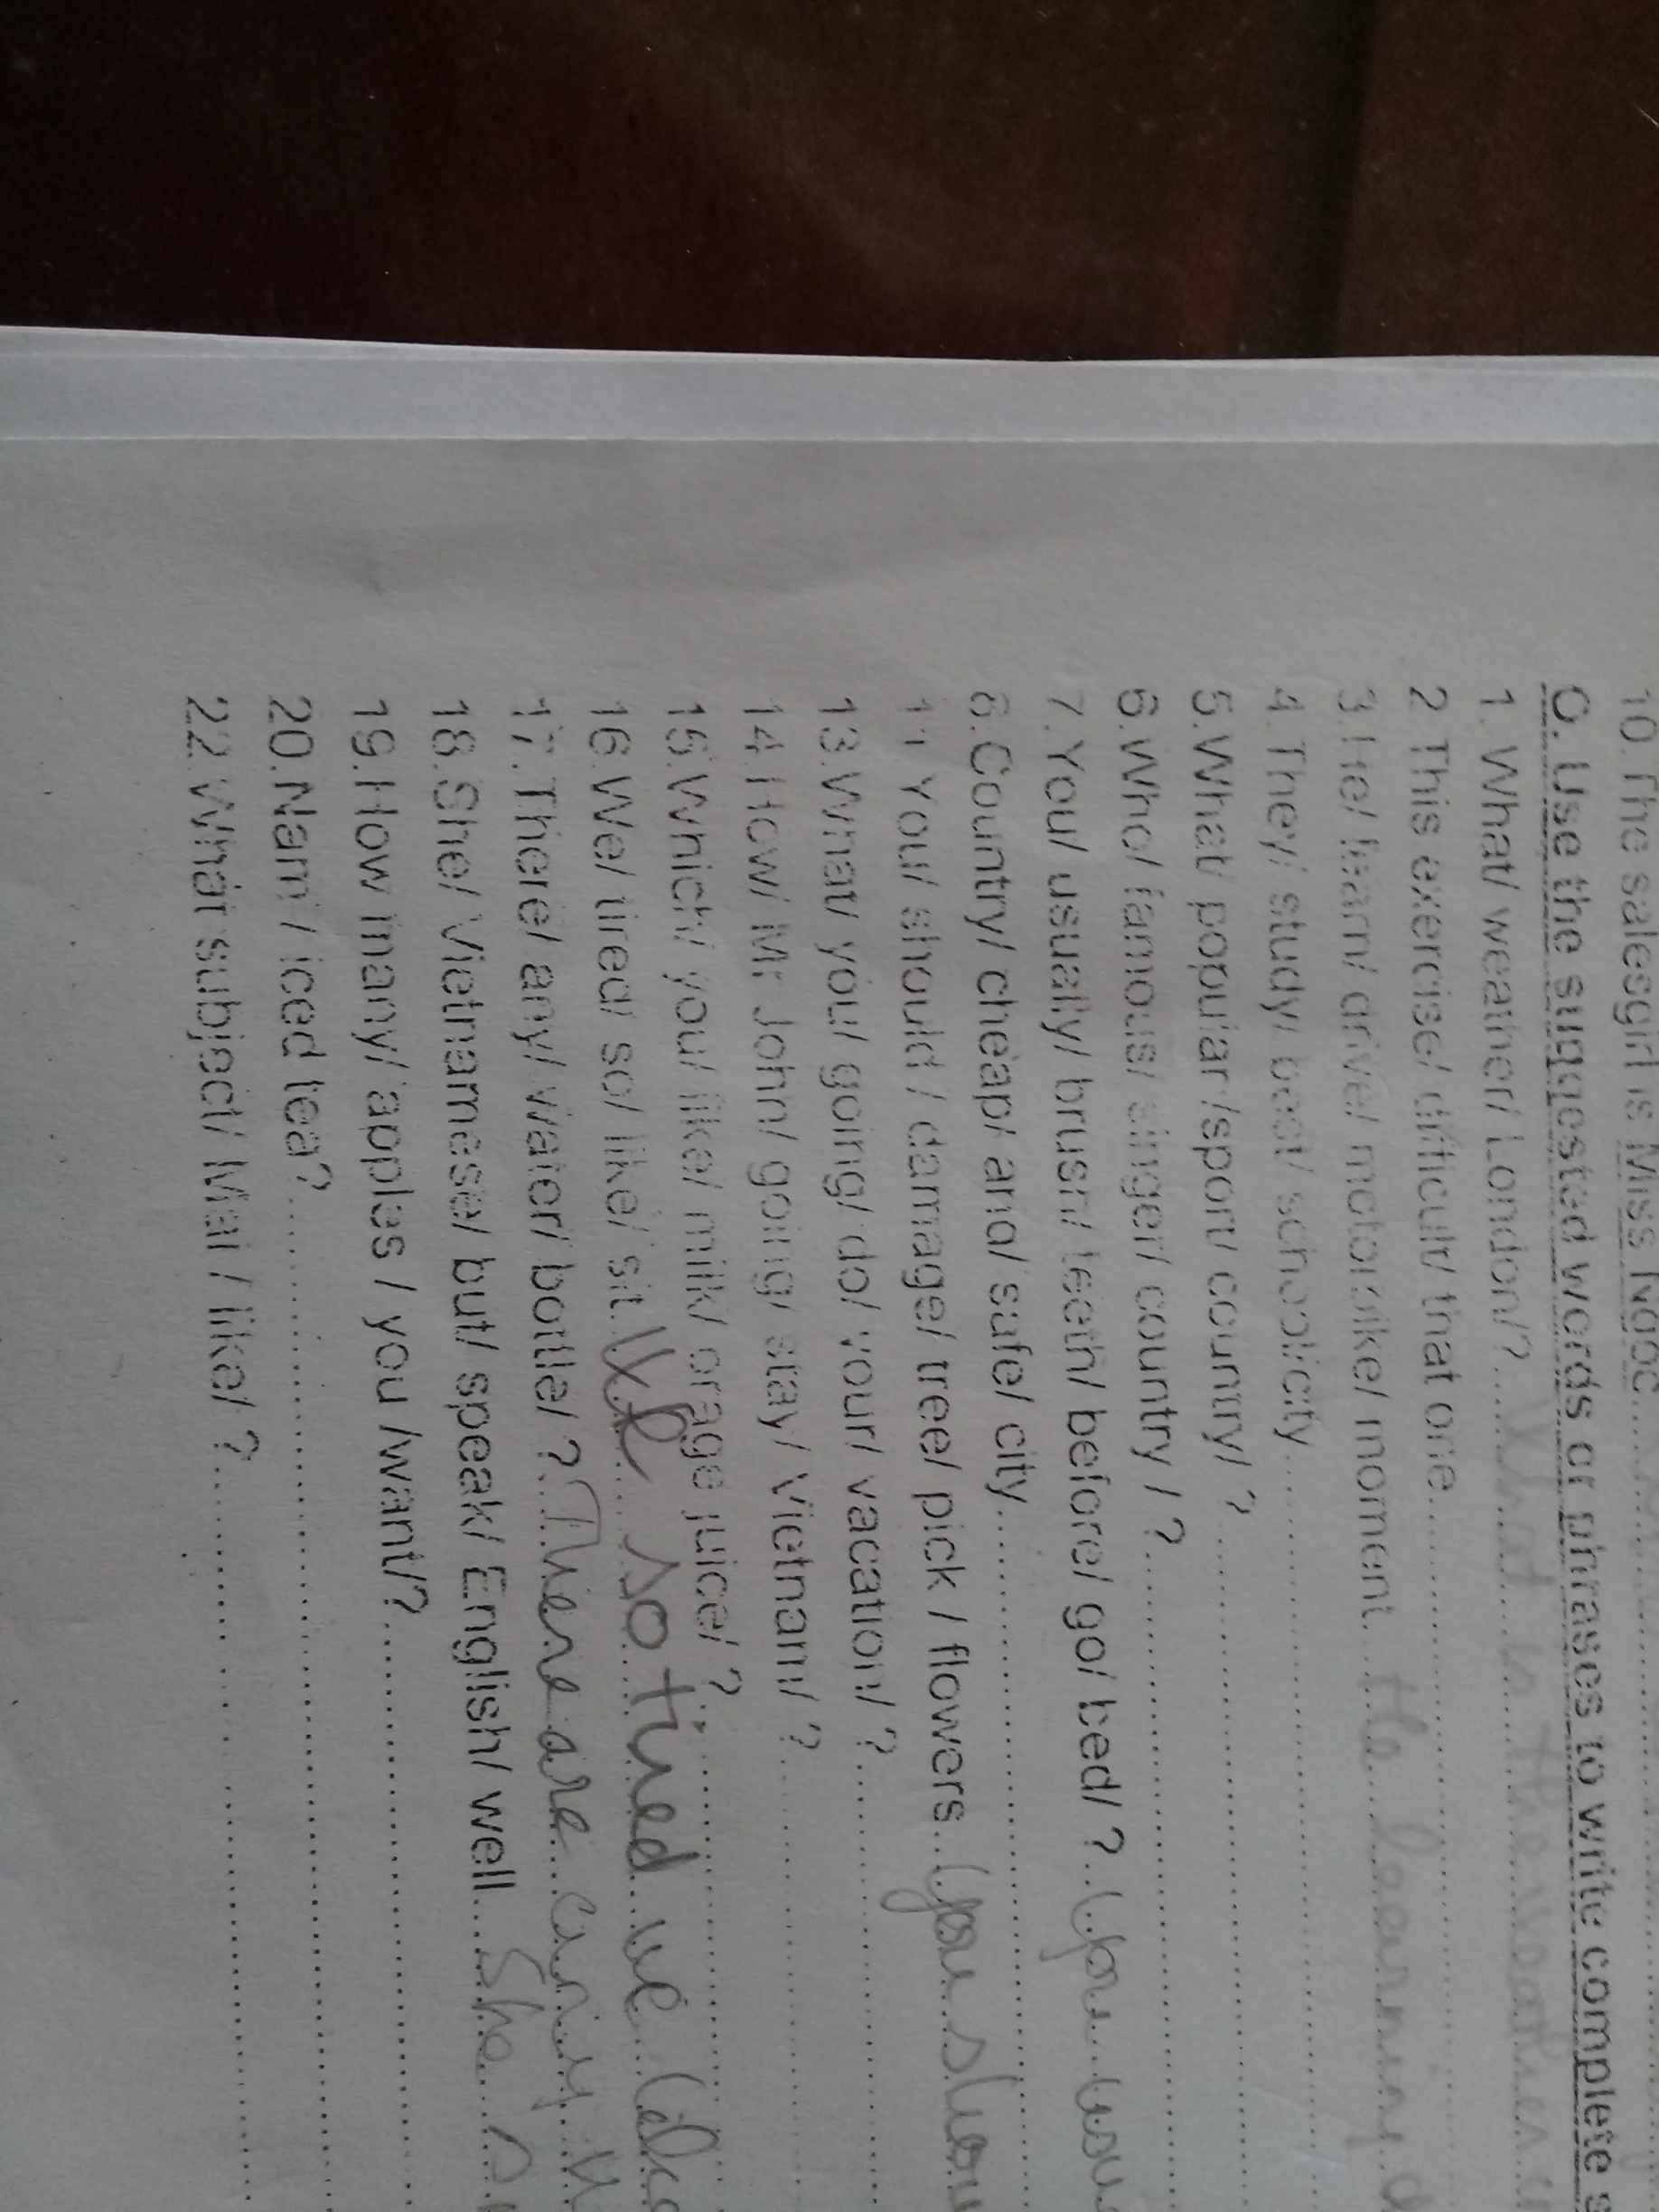 10.The salesgirl is Miss Ngoc..........
C. Use the suggested words or phrases to write complete s
1.What/ weather/ London/?.......... What is the weather
2.This exercise/ difficult/ that one..........
3.He/ learn/ drive/ motorbike/ moment.......... He learning
4.They/ study/ best/ school/city..........
5.What/ popular /sport/ country/ ?..........
6.Who/ famous/ singer/ country / ?..........
7.You/ usually/ brush/ teeth/ before/ go/ bed/ ?.......... You usu
8.Country/ cheap/ and/ safe/ city..........
11.You/ should / damage/ tree/ pick / flowers.......... You shou
13.What/ you/ going/ do/ your/ vacation/ ?..........
14.How/ Mr John/ going/ stay/ Vietnam/ ?..........
15.Which/ you/ like/ milk/ orage juice/ ?..........
16.We/ tired/ so/ like/ sit.......... We so tired we like
17.There/ any/ water/ bottle/ ?.......... There are any
18.She/ Vietnamese/ but/ speak/ English/ well.......... She
19.How many/ apples / you /want/?..........
20.Nam / iced tea?..........
22.What subject/ Mai / like/ ?..........